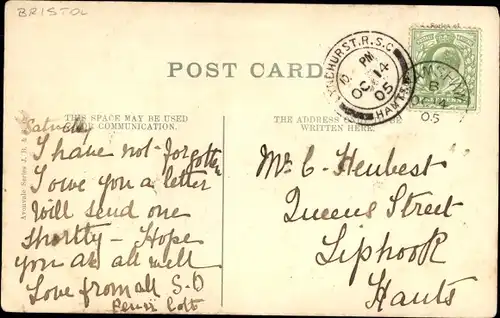 BRISTOL
POST CARD
LYNDHURST.R.S.O.
PM
OC 14
05
HANTS
OC 14
05
THIS SPACE MAY BE USED
FOR COMMUNICATION.
THE ADDRESS
WRITTEN HERE.
Avonvale Series
I have not forgotten
I owe you a letter
Will send one
shortly - Hope
you are all well
Love from all
Mr C. Heubest
Queens Street
Liphook
Hants